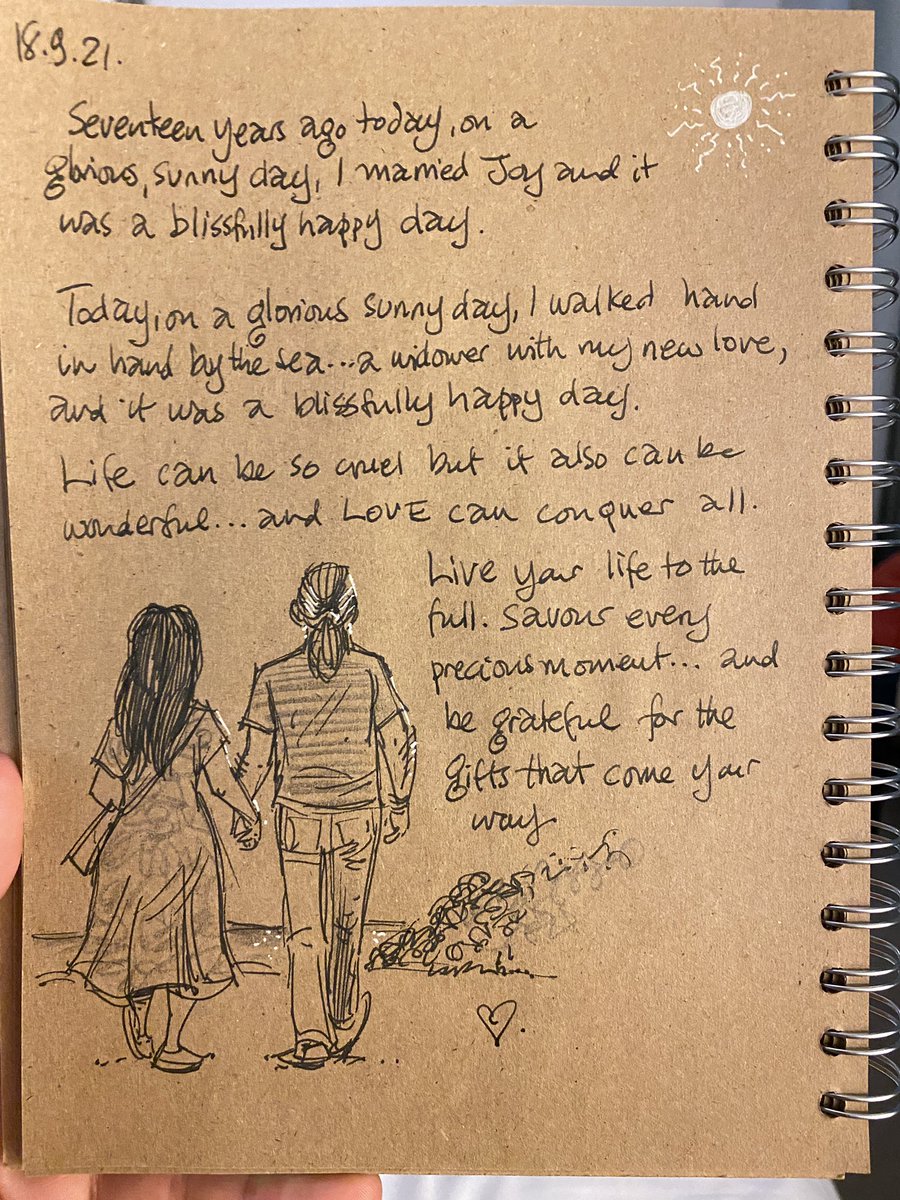 18.9.21.
Seventeen years ago today, on a
glorious, sunny day, I married Joy and it
was a blissfully happy day.
Today, on a glorious sunny day, I walked hand
in hand by the sea...a widower with my new love,
and it was a blissfully happy day.
Life can be so cruel but it also can be
wonderful... and LOVE can conquer all.
Live your life to the
full. Savour every
precious moment... and
be grateful for the
gifts that come your
way